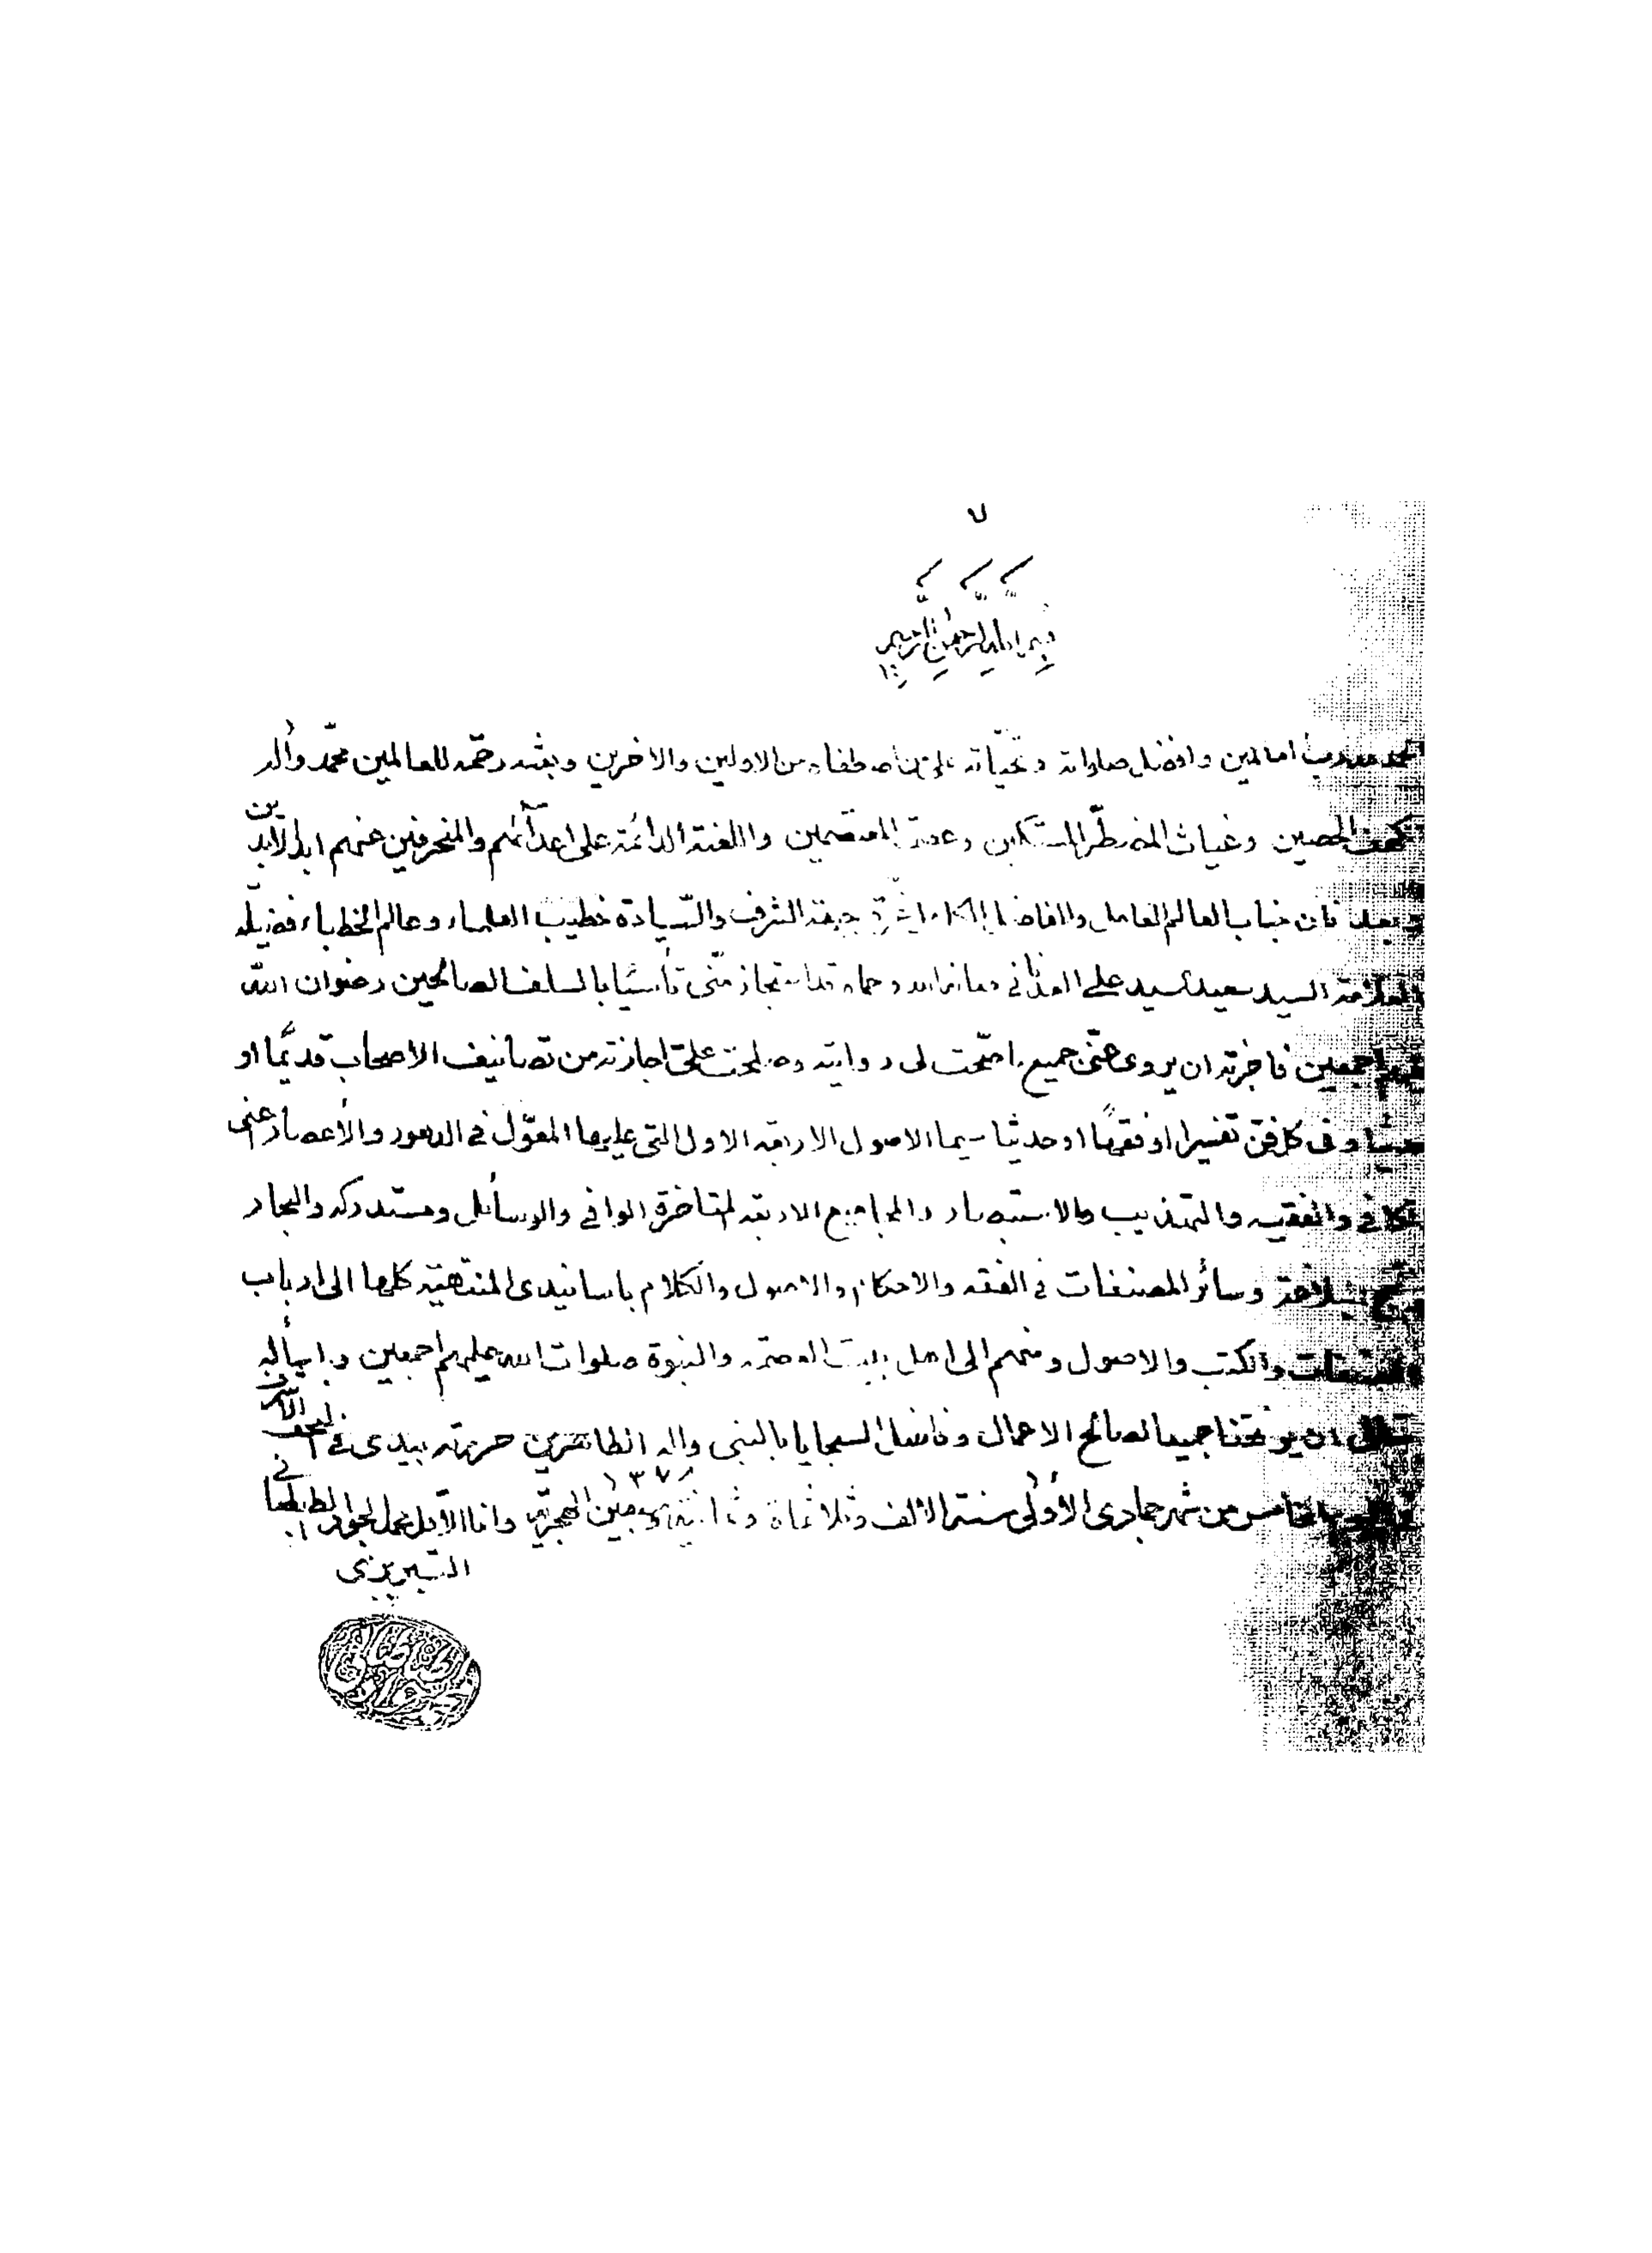 ٧
بسم الله الرحمن الرحيم
الحمد لله رب العالمين وافضل صلواته وتحيّاته على من اصطفاه من الاولين والاخرين وبعثه رحمة للعالمين محمّد وآله
الكهف الحصين وغياث المضطرّ المستكين وعصمة المعتصمين واللعنة الدائمة على اعدآئهم والمنحرفين عنهم ابد الآبدين
وبعد فان جناب العالم العامل والفاضل الكامل حديقة الشرف والسّيادة خطيب العلماء وعالم الخطباء فضيلة
العلامة السيد سعيد السيد علي العدناني دعاه الله وحماه قد استجاز منّي تأسّيا بالسلف الصالحين رضوان الله
عليهم اجمعين فاجزته ان يروى عنّى جميع ما صحّت لى روايته وصلحت علىّ اجازته من تصانيف الاصحاب قديمًا او
حديثا وفى كل فنّ تفسيرا او فقهًا او حديثا سيما الاصول الاربعة الاول التى عليها المعوّل فى الدهور والأعصار عنى
الكافي والفقيه والتهذيب والاستبصار والمجاميع الاربعة المتاخرة الوافي والوسائل ومستدركه والبحار
ونهج البلاغة وسائر المصنفات في الفقه والاحكام والاصول والكلام باسانيدى المنتهية كلها الى ارباب
المصنفات والكتب والاصول ومنهم الى اهل بيت العصمة والنبوة صلوات الله عليهم اجمعين واسأله
تعالى ان يوفقنا جميعا لصالح الاعمال وفاضل السجايا بالنبى واله الطاهرين حررته بيدى في النجف الاشرف
في اليوم الخامس من شهر جمادى الأولى سنة الالف وثلاثمائة وثمانية وسبعين الهجرية ١٣٧٨ وانا الاقل محمد الجواد الطباطبائي
التبريزى